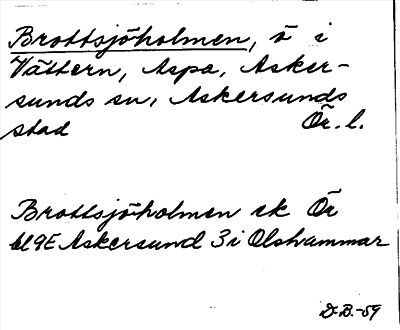 Brottsjöholmen, ö i
Vättern, Aspa, Asker-
sunds sn, Askersunds
stad Ör. l.
Brottsjöholmen ek Ör
bl 9E Askersund 3 i Olshammar
D.B.-59